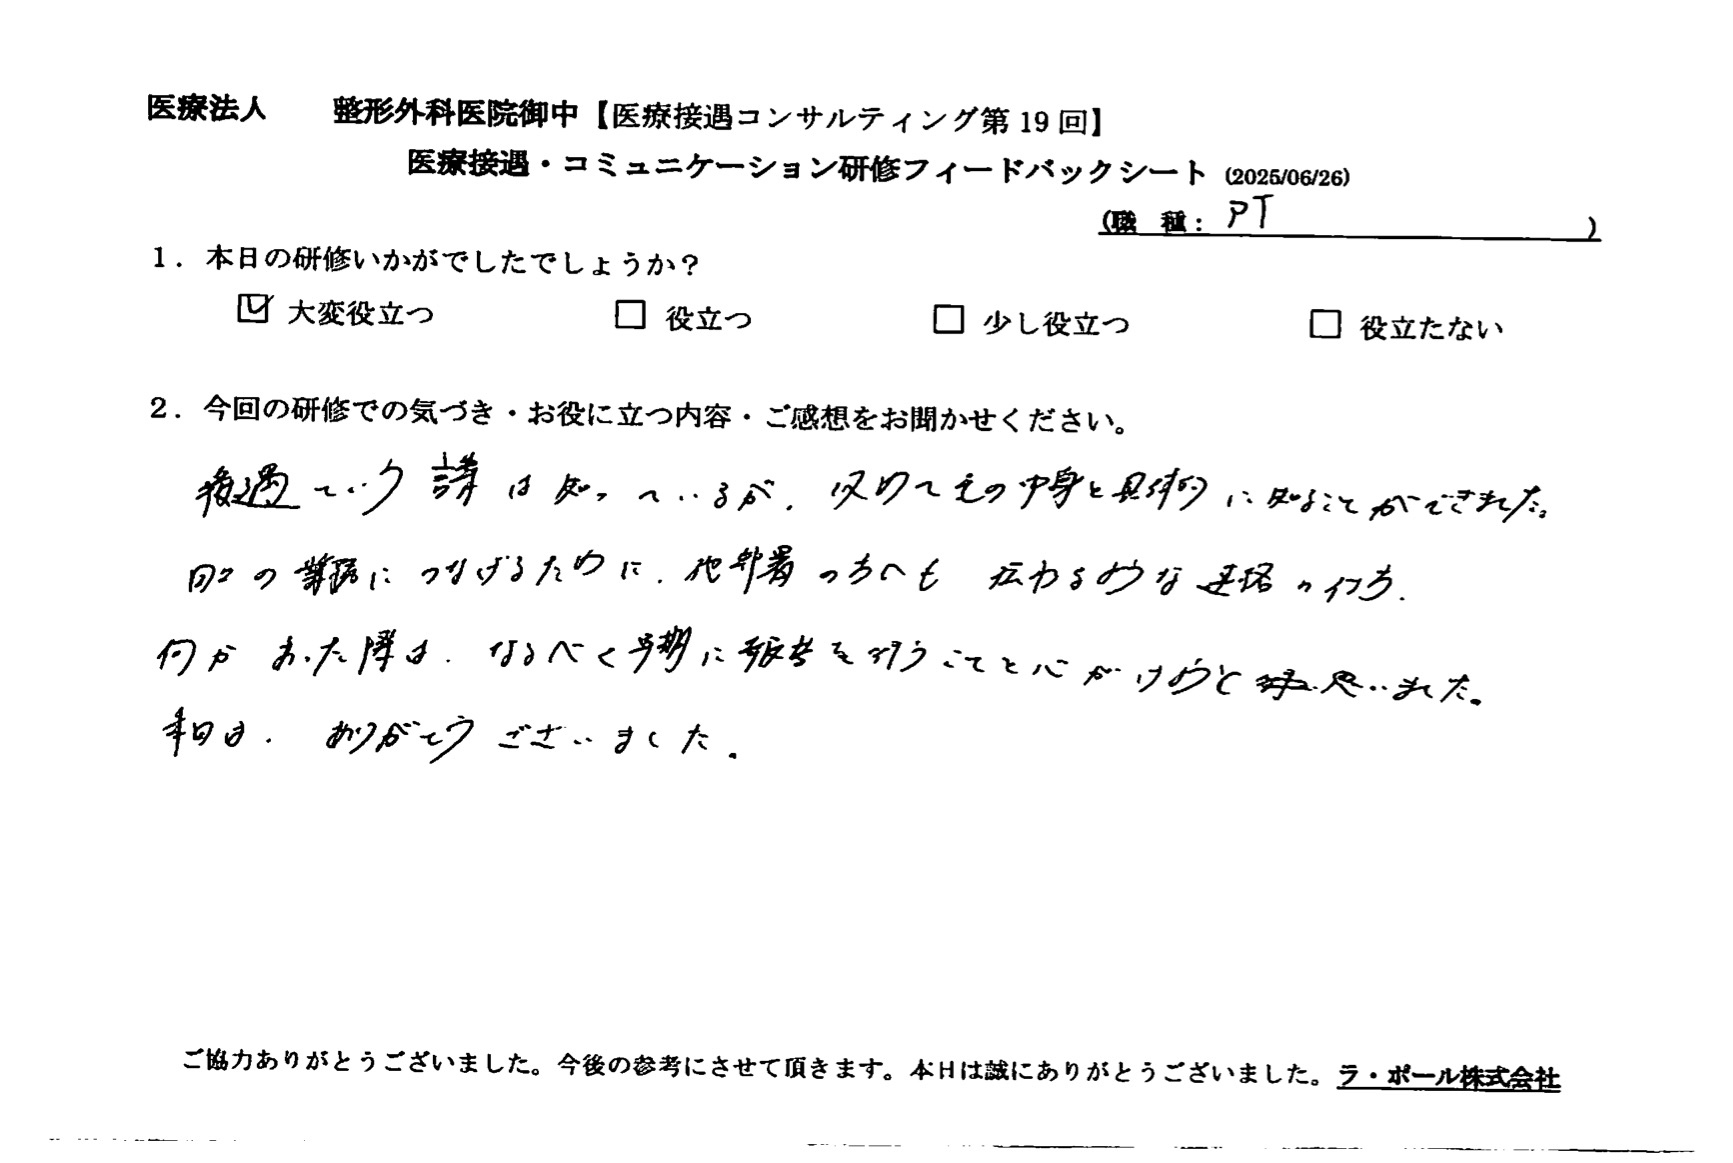 医療法人 整形外科医院御中【医療接遇コンサルティング第19回】
医療接遇・コミュニケーション研修フィードバックシート (2025/06/26)
(職 種: PT )
1. 本日の研修いかがでしたでしょうか?
☑ 大変役立つ □ 役立つ □ 少し役立つ □ 役立たない
2. 今回の研修での気づき・お役に立つ内容・ご感想をお聞かせください。
接遇という講は知っているが、改めてその中身を具体的に知ることができました。
日々の業務につなげるために、他部署の方へも伝わるような連絡の仕方、
何かあった際は、なるべく早期に報告を行うことを心がけようと思いました。
本日は、ありがとうございました。
ご協力ありがとうございました。今後の参考にさせて頂きます。本日は誠にありがとうございました。ラ・ポール株式会社